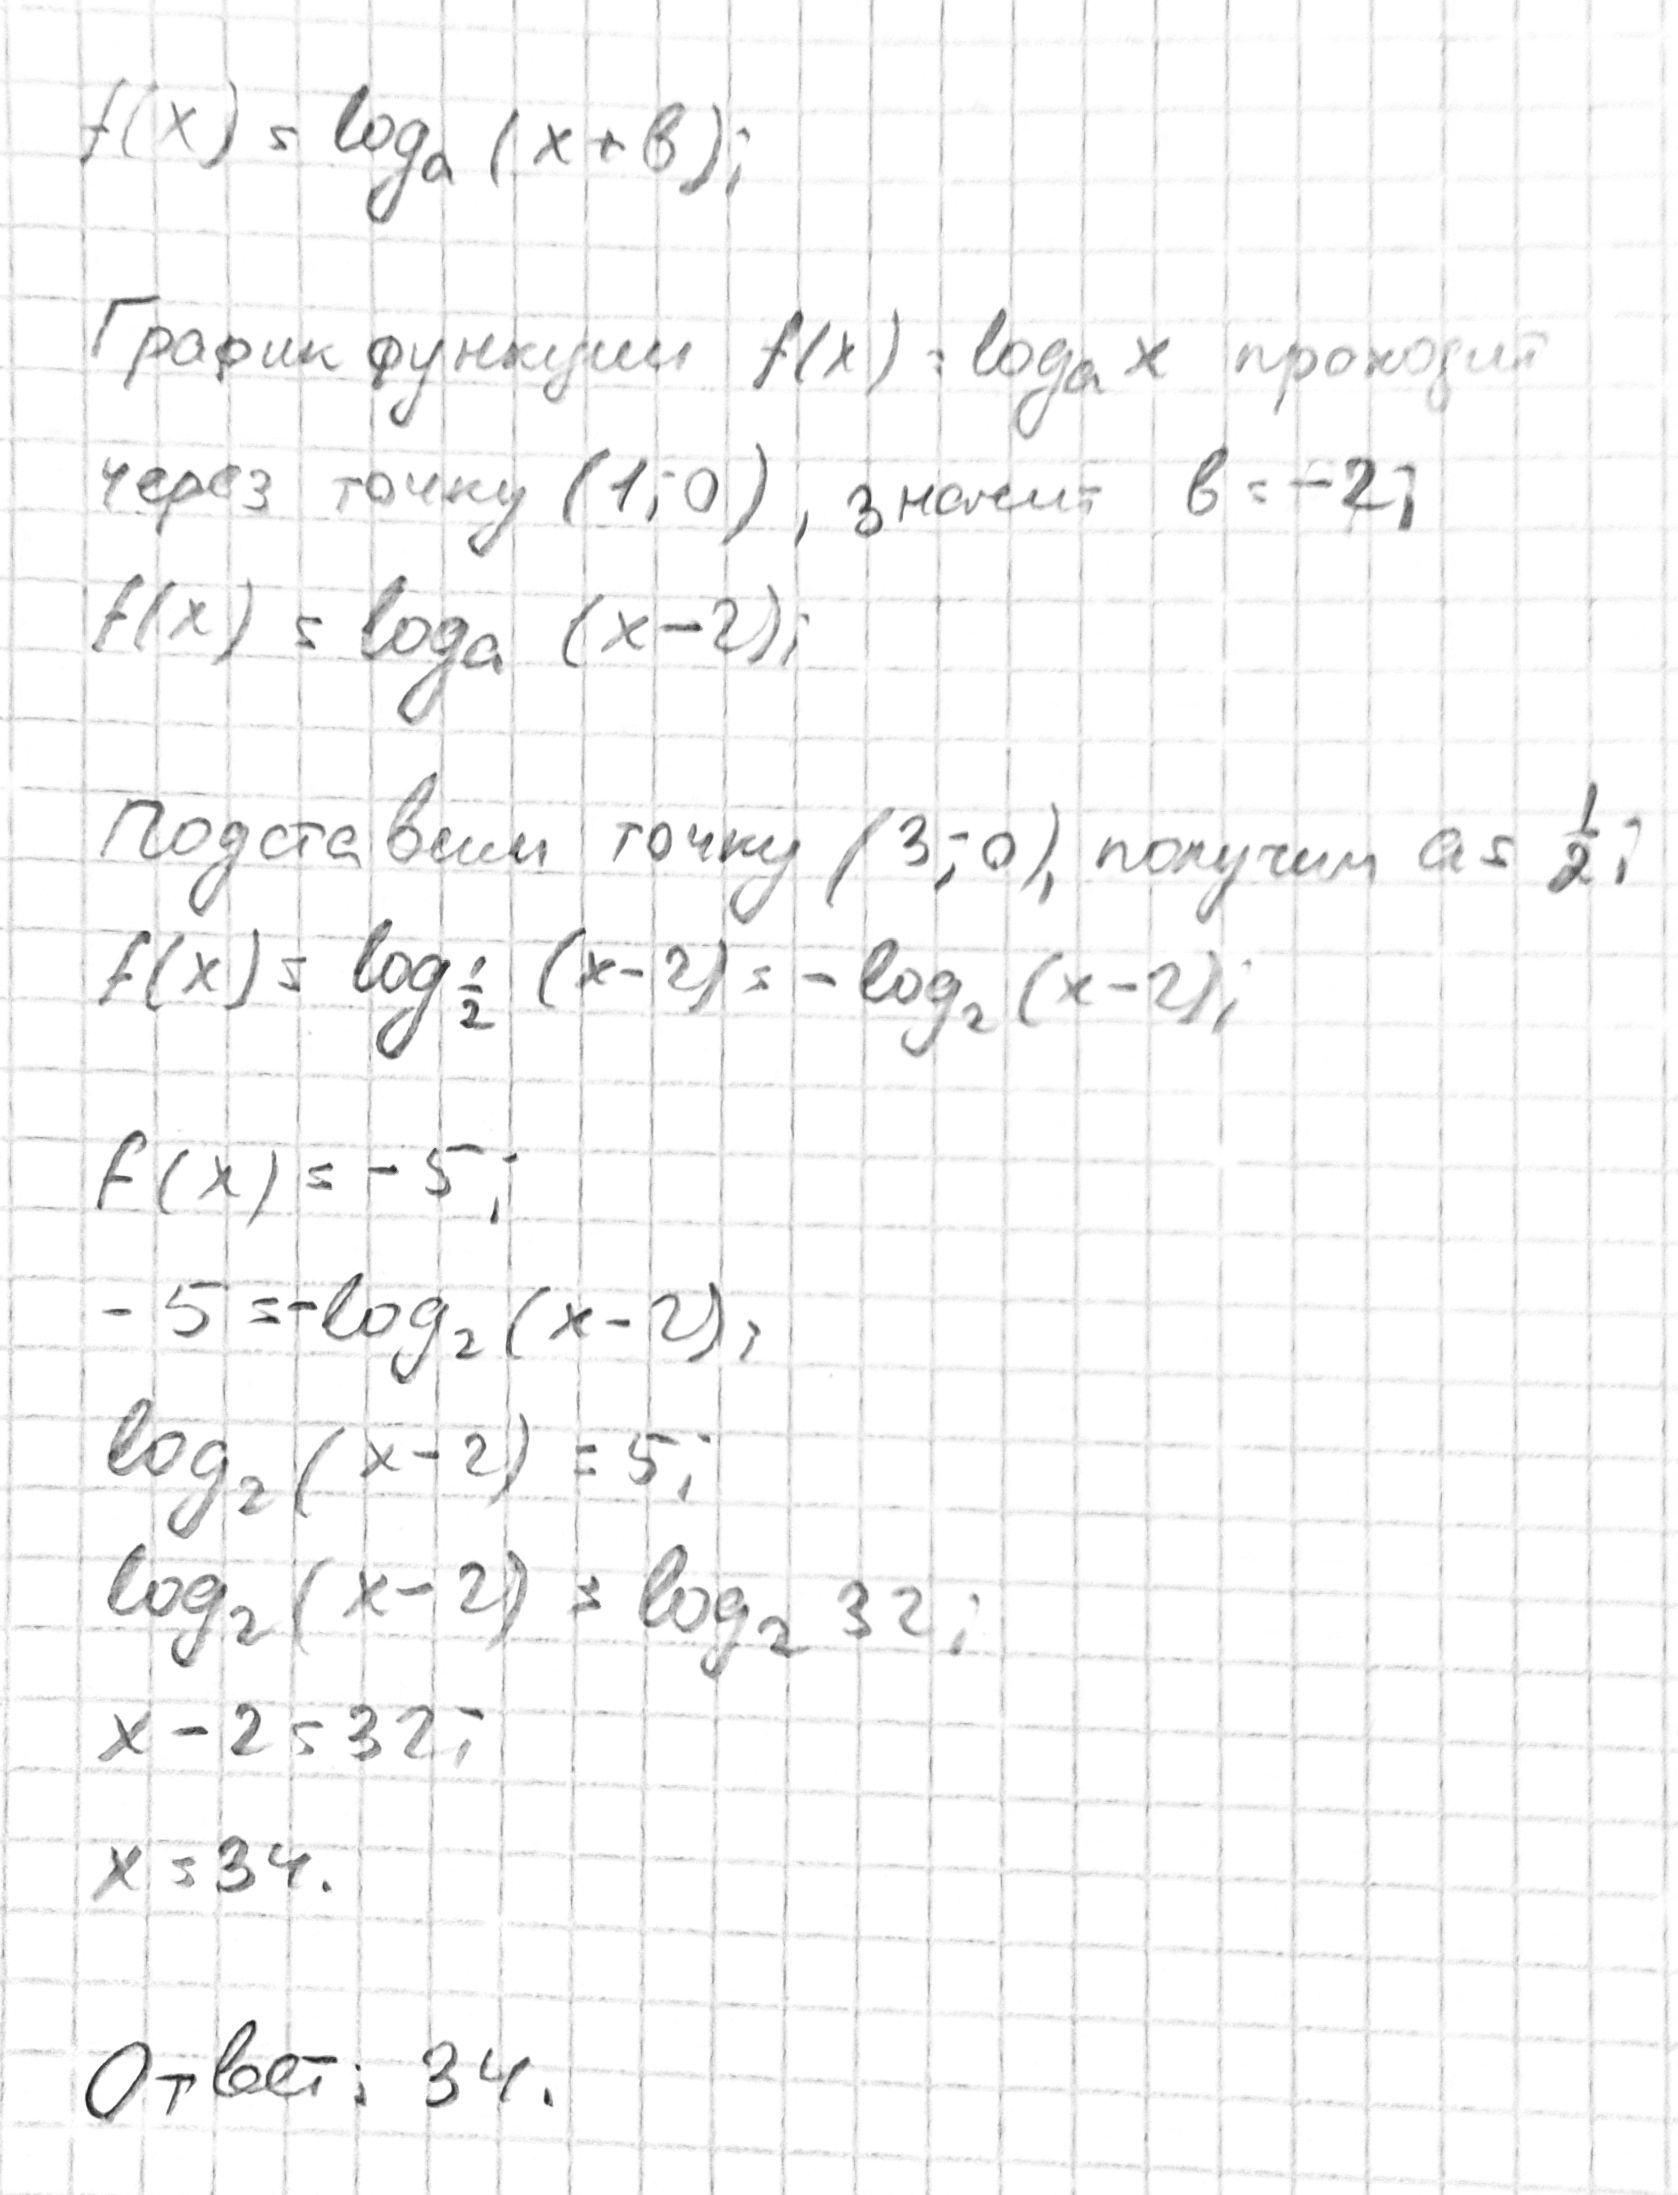 f(x) = logₐ (x + b);
График функции f(x) = logₐ x проходит
через точку (1; 0), значит b = -2;
f(x) = logₐ (x - 2);
Подставим точку (3; 0), получим a = 1/2;
f(x) = log_{1/2} (x - 2) = - log₂ (x - 2);
f(x) = - 5;
- 5 = - log₂ (x - 2);
log₂ (x - 2) = 5;
log₂ (x - 2) = log₂ 32;
x - 2 = 32;
x = 34.
Ответ: 34.